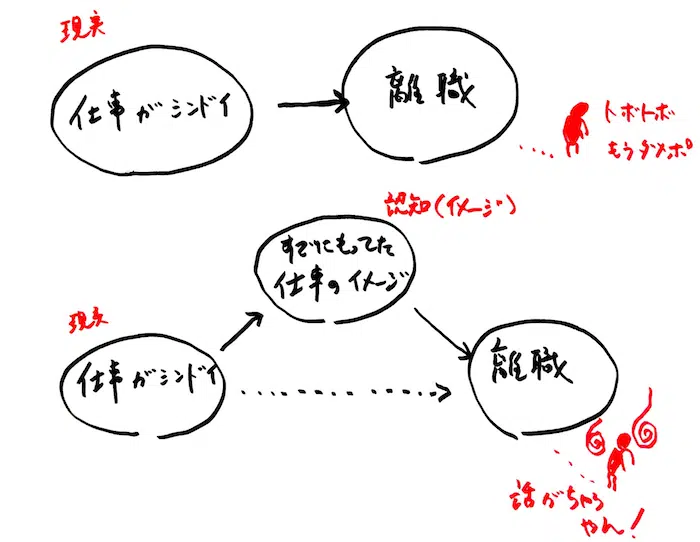 現実
仕事がシンドイ
離職
トボトボ
もうダメポ
認知(イメージ)
すでにもってた
仕事のイメージ
現実
仕事がシンドイ
離職
話がちゃう
やん!